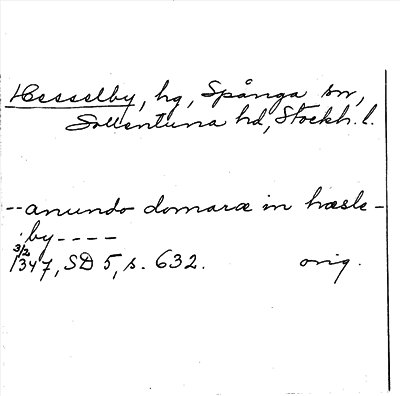 Hesselby, hg, Spånga sn,
Sollentuna hd, Stockh. l.
-- anundo domaræ in hæsle-
by ----
3/2
1347, SD 5, s. 632. orig.